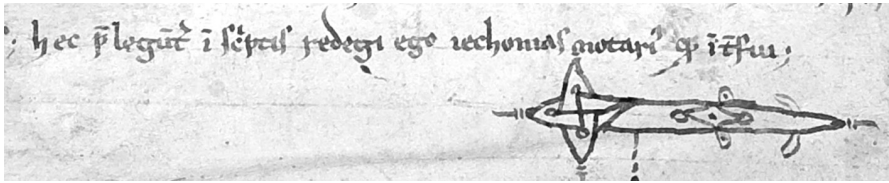 hec p̄legūt᷑ ī sc̓ptis redegi ego iechonias notari᷒ qͥ īt̄fui;